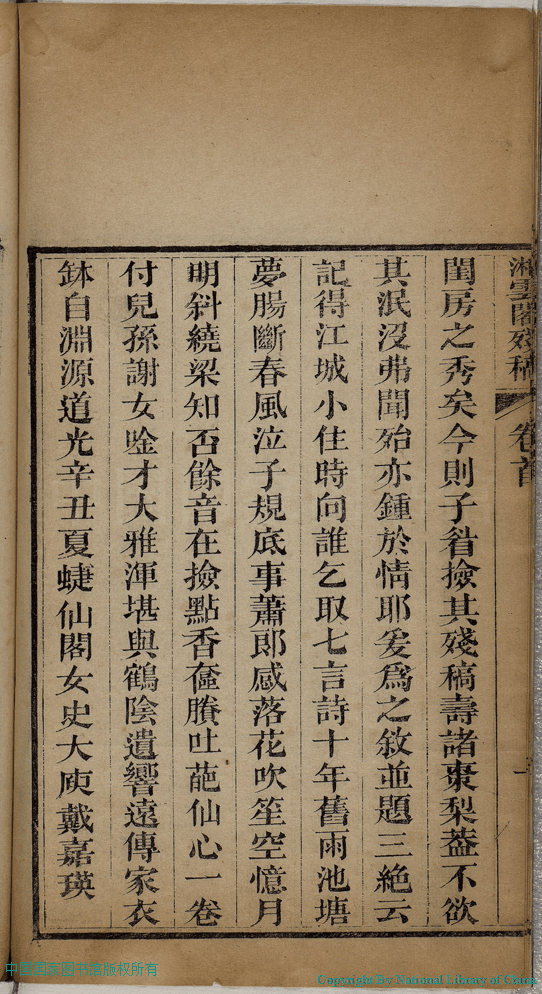 湘雲閣殘稿 卷首 一
閨房之秀矣今則子㫺撿其殘稿壽諸棗梨葢不欲
其泯沒弗聞殆亦鍾於情耶爰爲之敘並題三絶云
記得江城小住時向誰乞取七言詩十年舊雨池塘
夢腸斷春風泣子規底事蕭郎感落花吹笙空憶月
明斜繞梁知否餘音在撿點香奩賸吐葩仙心一卷
付兒孫謝女唫才大雅渾堪與鶴陰遺響遠傳家衣
鉢自淵源道光辛丑夏蜨仙閣女史大庾戴嘉瑛
中国国家图书馆版权所有
Copyright By National Library of China